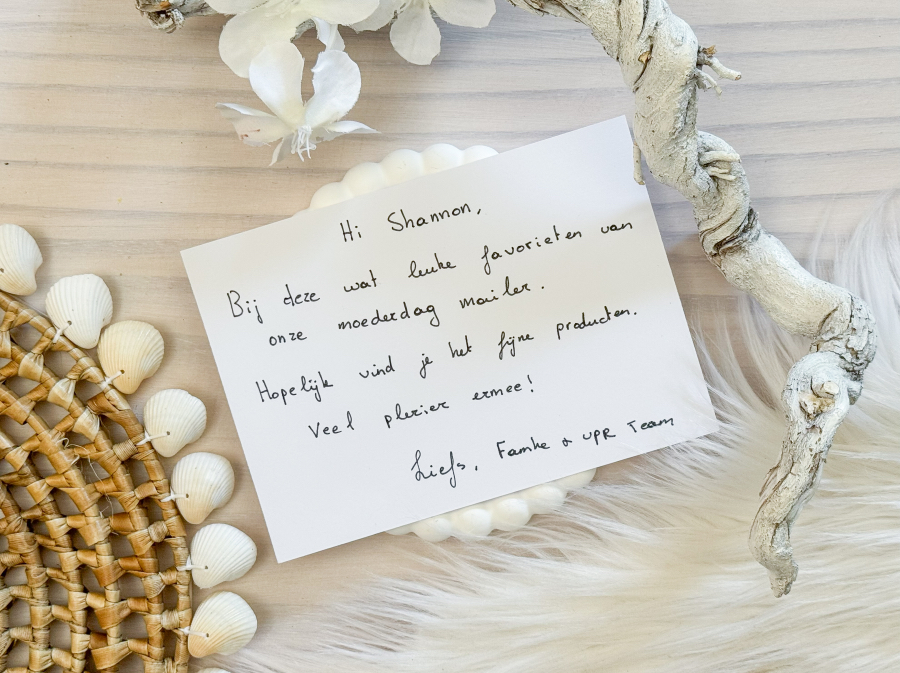 Hi Shannon,
Bij deze wat leuke favorieten van
onze moederdag mailer.
Hopelijk vind je het fijne producten.
Veel plezier ermee!
Liefs, Famke & UPR Team